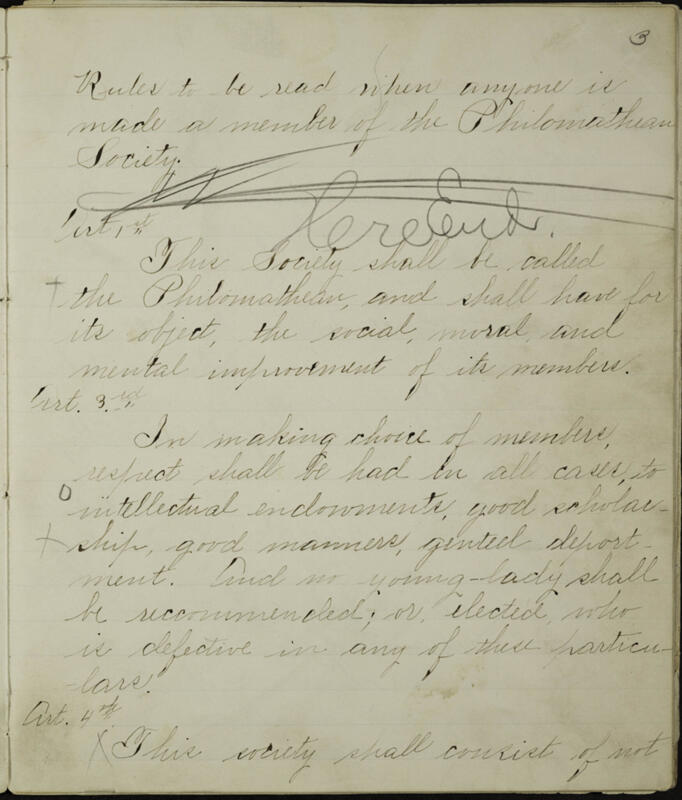 3
Rules to be read when anyone is
made a member of the Philomathean
Society.
Here End.
Art. 1st
This Society shall be called
the Philomathean, and shall have for
its object, the social, moral, and
mental improvement of its members.
Art. 3.rd
In making choice of members,
respect shall be had in all cases, to
intellectual endowments, good scholar-
ship, good manners, genteel deport-
ment. And no young-lady shall
be recommended; or, elected, who
is defective in any of these particu-
-lars.
Art. 4th
This society shall consist of not